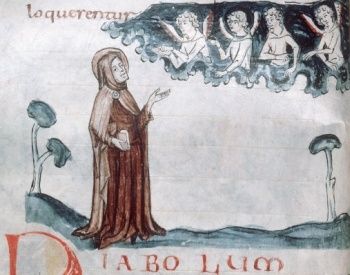 loquerentur
DIABOLUM